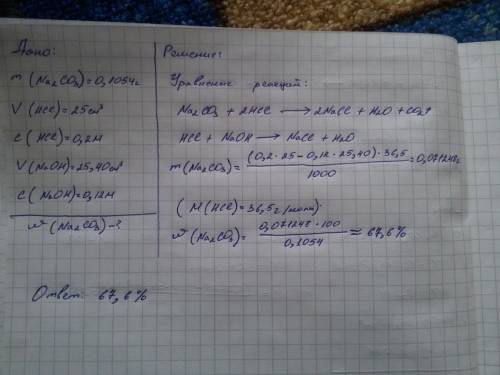 Дано:
m (Na2CO3) = 0,1054г
V (HCl) = 25 см³
c (HCl) = 0,2М
V (NaOH) = 25,40 см³
c (NaOH) = 0,12М
ω (Na2CO3) - ?
Решение:
Уравнение реакций:
Na2CO3 + 2HCl → 2NaCl + H2O + CO2↑
HCl + NaOH → NaCl + H2O
m (Na2CO3) = (0,2 · 25 - 0,12 · 25,40) · 36,5 / 1000 = 0,07124г
( M (HCl) = 36,5 г/моль)
ω (Na2CO3) = 0,07124 · 100 / 0,1054 ≈ 67,6%
Ответ: 67,6%